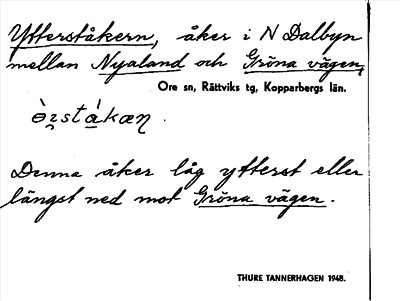 Ytterståkern, åker i N Dalbyn
mellan Nyaland och Gröna vägen,
Ore sn, Rättviks tg, Kopparbergs län.
Denna åker låg ytterst eller
längst ned mot Gröna vägen.
THURE TANNERHAGEN 1948.